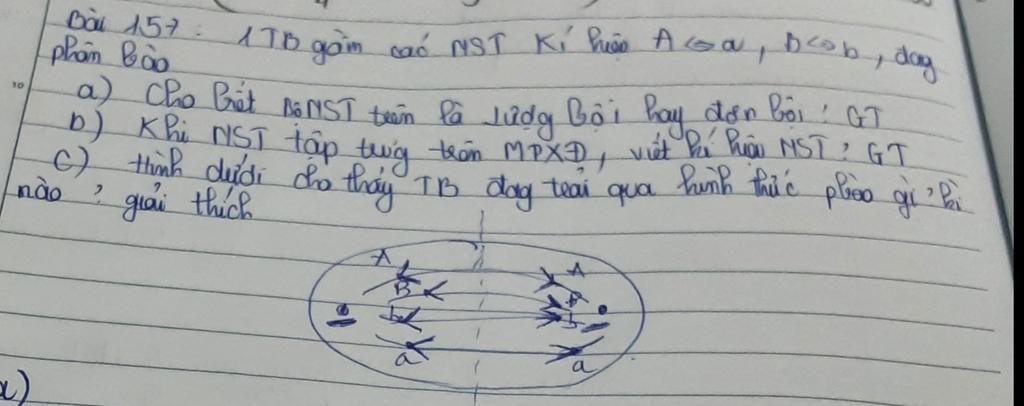 Bài 157: 1 TB gồm các NST Kí hiệu A <=> a, B <=> b, đag
phân bào
a) Cho biết bộ NST trên là lưỡg Bội hay đơn Bội? GT
b) Khi NST tập trug trên MPXĐ, viết kí hiệu NST? GT
c) Hình dưới cho thấy TB đag trải qua hình thức pbào gì? kì
nào? giải thích
A A
B B
b b
a a